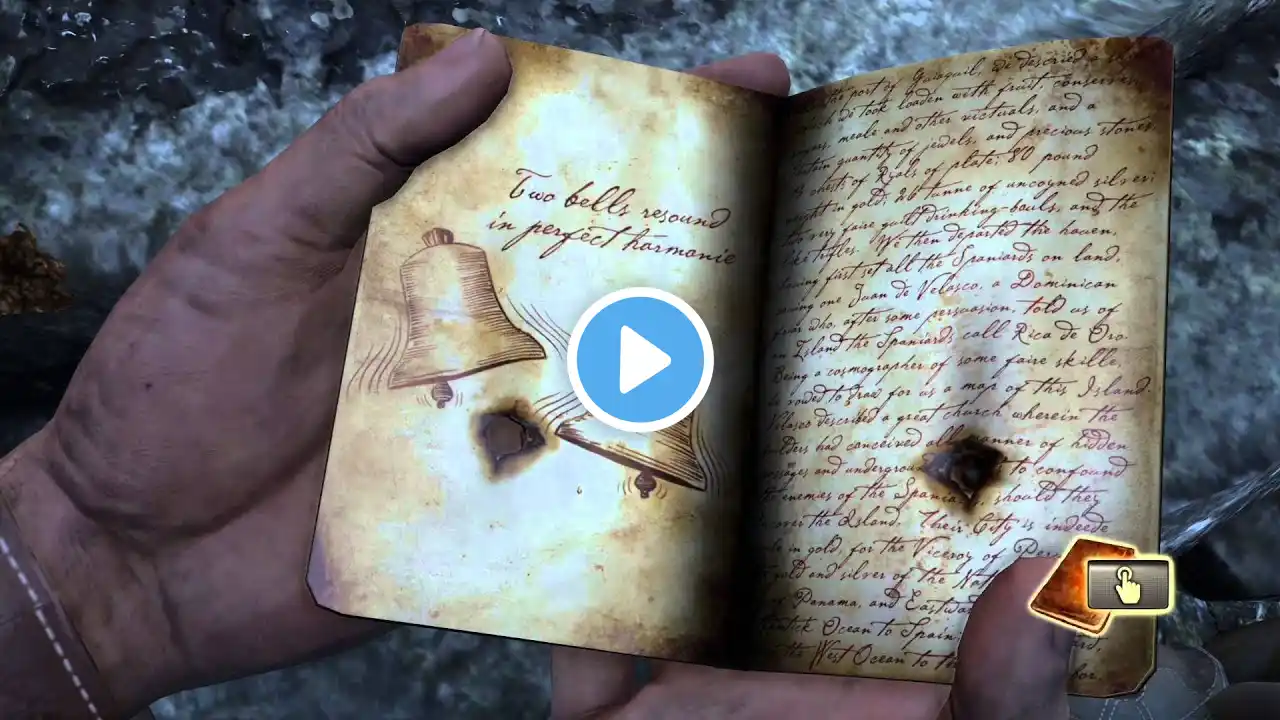 Two bells resound
in perfect harmonie
port of Guiaquil, we descried a
we took loaden with fruit, conserves
meale and other victuals, and a
quantity of jewels, and precious stones
chests of Rials of plate; 80 pound
in gold; 26 tunne of uncoyned silver;
very faire guilt drinking-bouls, and the
like trifles. We then departed the haven,
having first set all the Spaniards on land,
saving one Juan de Velasco, a Dominican
friar who, after some persuasion, told us of
an Island the Spaniards call Rica de Oro.
Being a cosmographer of some faire skille,
he vowed to draw for us a map of this Island.
Velasco described a great church wherein the
builders had conceived all manner of hidden
passages and to confound
enemies of the should they
the Island. Their City is indeede
in gold, for the Viceroy of
gold and silver of the
of Panama, and
Ocean to Spain
the West Ocean to
for